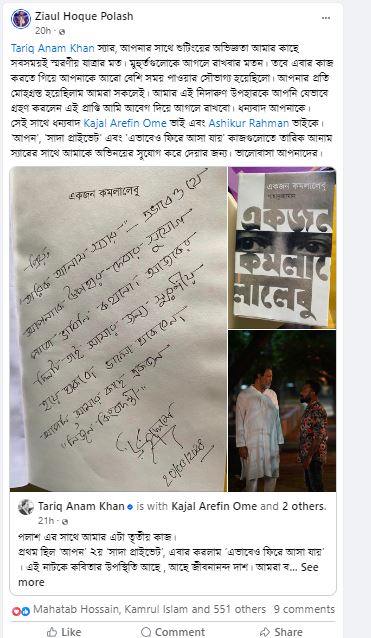 Ziaul Hoque Polash
20h
Tariq Anam Khan স্যার, আপনার সাথে শুটিংয়ের অভিজ্ঞতা আমার কাছে
সবসময়ই স্মরণীয় যাত্রার মত। মুহূর্তগুলোকে আগলে রাখবার মতন। তবে এবার কাজ
করতে গিয়ে আপনাকে আরো বেশি সময় পাওয়ার সৌভাগ্য হয়েছিলো। আপনার প্রতি
মোহগ্রস্ত হয়েছিলাম আমরা সকলেই। আমার এই নিদারুণ উপহারকে আপনি যেভাবে
গ্রহণ করলেন এই প্রাপ্তি আমি আবেগ দিয়ে আগলে রাখবো। ধন্যবাদ আপনাকে।
সেই সাথে ধন্যবাদ Kajal Arefin Ome ভাই এবং Ashikur Rahman ভাইকে।
'আপন', 'সাদা প্রাইভেট' এবং 'এভাবেও ফিরে আসা যায়' কাজগুলোতে তারিক আনাম
স্যারের সাথে আমাকে অভিনয়ের সুযোগ করে দেয়ার জন্য। ভালোবাসা আপনাদের।
একজন কমলালেবু
প্রিয়
তারিক আনাম স্যার"
আপনাকে উপহার দেবার সুযোগ
পাবো ভাবিনি কখনো। আজকের
দিনটি তাই আমার জন্য স্মরণীয়
হয়ে থাকবে। ভালো থাকবেন।
আপনি আমার কাছে একজন
একজন কমলালেবু
শাহাদুজ্জামান
একজন
কমলা
লালেবু
Tariq Anam Khan is with Kajal Arefin Ome and 2 others.
21h
পলাশ এর সাথে আমার এটা তৃতীয় কাজ।
প্রথম ছিল 'আপন' ২য় 'সাদা প্রাইভেট', এবার করলাম 'এভাবেও ফিরে আসা যায়'
। এই নাটকে কবিতার উপস্থিতি আছে , আছে জীবনানন্দ দাশ। আমরা ব... See
more
Mahatab Hossain, Kamrul Islam and 551 others 9 comments
Like Comment Share